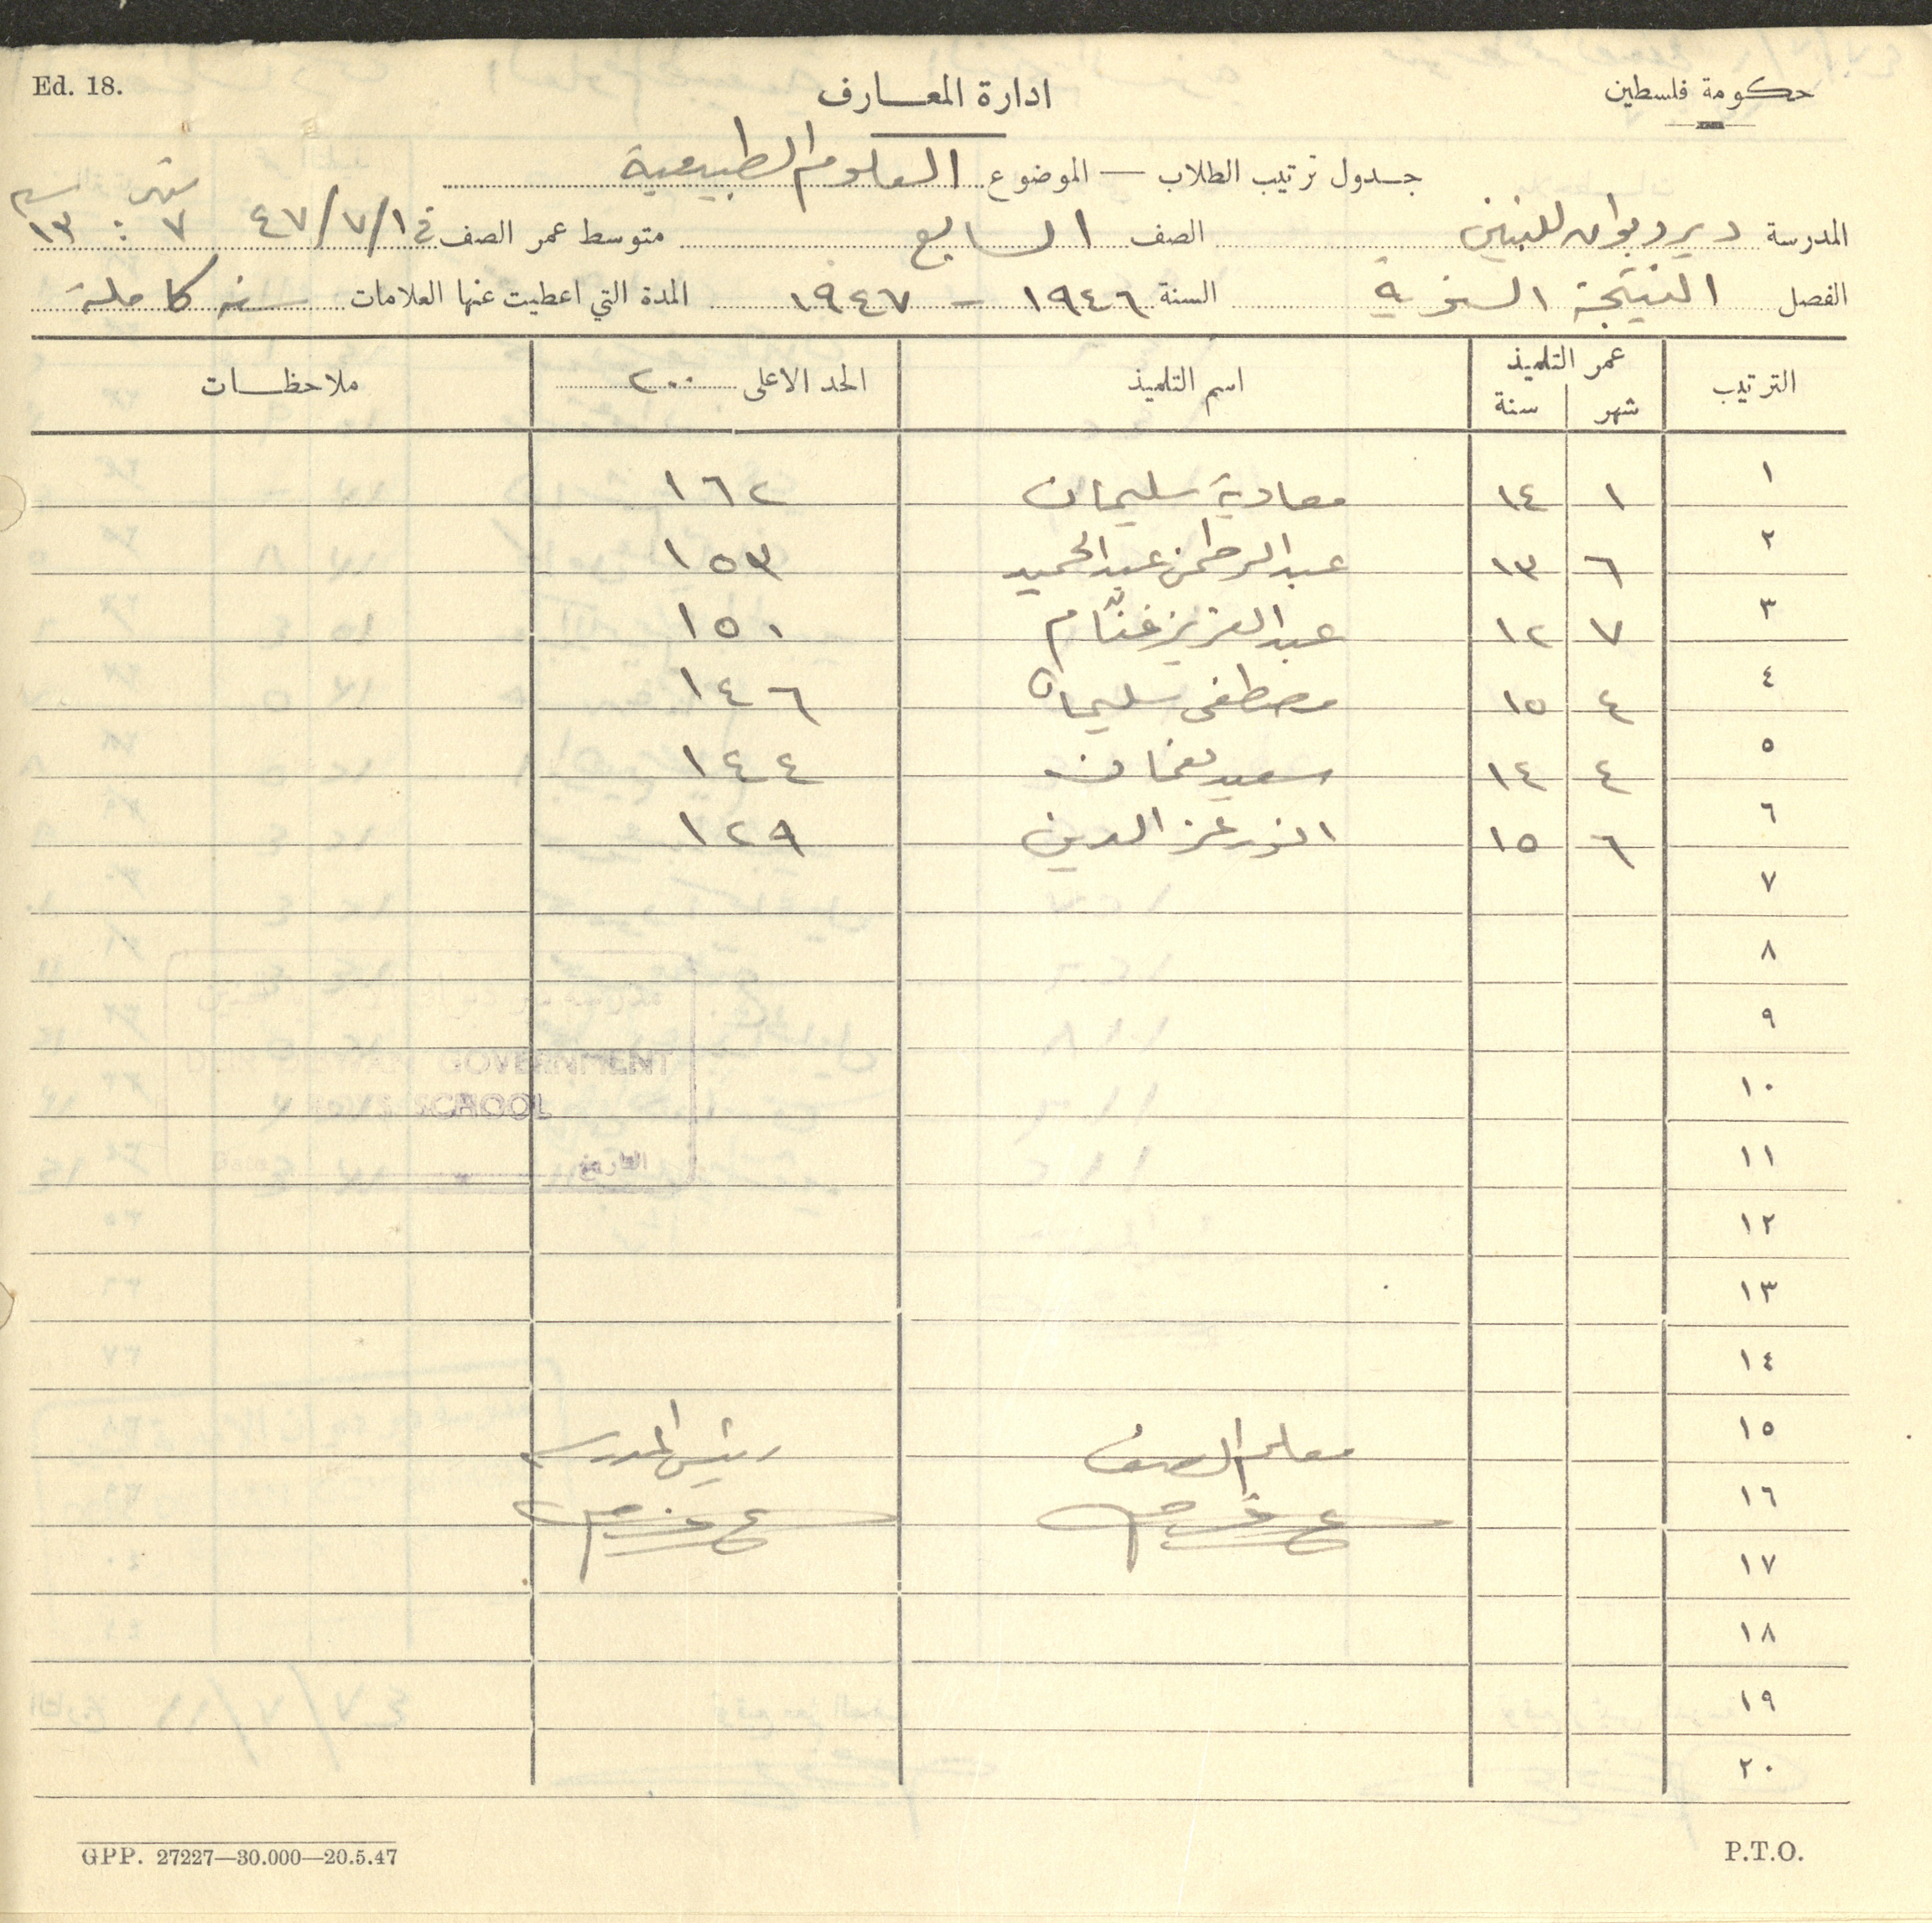 Ed. 18.
ادارة المعارف
حكومة فلسطين
جدول ترتيب الطلاب — الموضوع العلوم الطبيعية
المدرسة ديردبوان للبنين الصف السابع متوسط عمر الصف في ٤٧/٧/١ شهر ٧ : سنة ١٣
الفصل النتيجة السنوية السنة ١٩٤٦ – ١٩٤٧ المدة التي اعطيت عنها العلامات سنة كاملة
الترتيب عمر التلميذ شهر سنة اسم التلميذ الحد الاعلى ٢٠٠ ملاحظات
١ ١ ١٤ معاوية سليمان ١٦٢
٢ ٦ ١٣ عبد الرحمن عبد الحميد ١٥٣
٣ ٧ ١٢ عبد العزيز غنّام ١٥٠
٤ ٤ ١٥ مصطفى سليمان ١٤٦
٥ ٤ ١٤ سعيد نعمان ١٤٤
٦ ٦ ١٥ انور عز الدين ١٢٩
٧
٨
٩
١٠
DEIR DEBWAN GOVERNMENT
SCHOOL
١١
Date التاريخ
١٢
١٣
١٤
١٥ معلم الصف رئيس المدرسة
١٦
١٧
١٨
١٩
٢٠
GPP. 27227—30.000—20.5.47
P.T.O.